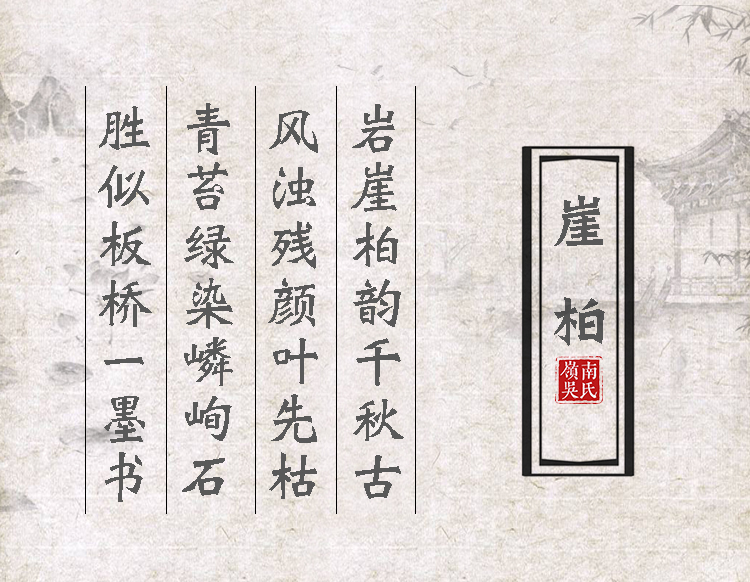 崖柏
南氏嶺吳
岩崖柏韵千秋古
风浊残颜叶先枯
青苔绿染嶙峋石
胜似板桥一墨书